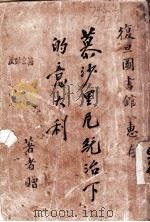 復旦圖書館 惠存
慕沙里尼統治下
的意大利
著者贈